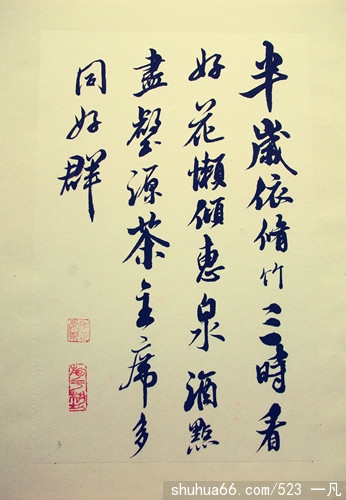 半歲依脩竹三時看
好花懶傾惠泉酒點
盡壑源茶主席多
同好群
shuhua66.com/523 一凡